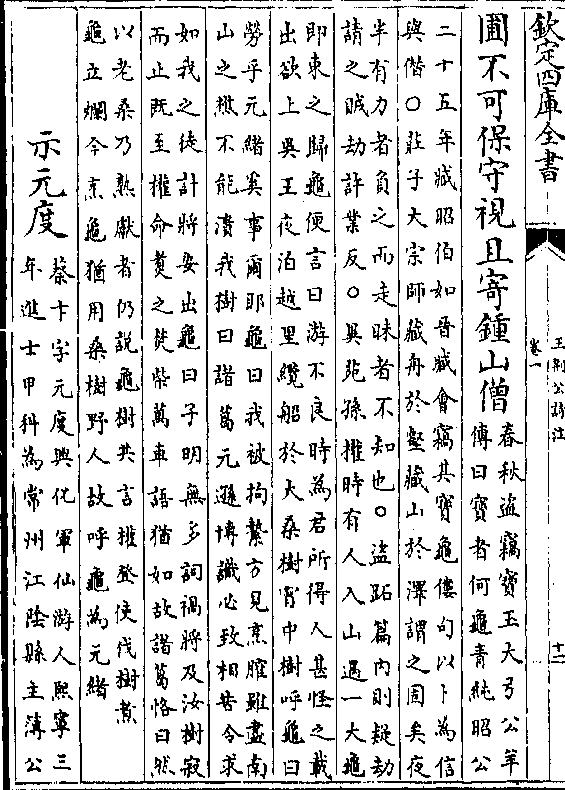 欽定四庫全書
王荆公詩注
卷一
十二
圃不可保守視且寄鍾山僧
春秋盜竊寶玉大弓公羊
傳曰寶者何龜青純昭公
二十五年臧昭伯如晉臧會竊其寶龜僂句以卜為信
與僭○莊子大宗師藏舟於壑藏山於澤謂之固矣夜
半有力者負之而走昧者不知也○盜跖篇内則疑劫
請之賊劫許業反○異苑孫權時有人入山遇一大龜
即束之歸龜便言曰游不良時為君所得人甚怪之載
出欲上吳王夜泊越里纜船於大桑樹宵中樹呼龜曰
勞乎元緒奚事爾耶龜曰我被拘繫方見烹臛雖盡南
山之樵不能潰我樹曰諸葛元遜博識必致相苦令求
如我之徒計將安出龜曰子明無多詞禍將及汝樹寂
而止既至權命煑之焚柴萬車語猶如故諸葛恪曰然
以老桑乃熟獻者仍說龜樹共言權登使伐樹煮
龜立爛今烹龜猶用桑樹野人故呼龜為元緒
示元度
蔡卞字元度興化軍仙游人熙寧三
年進士甲科為常州江陰縣主簿公